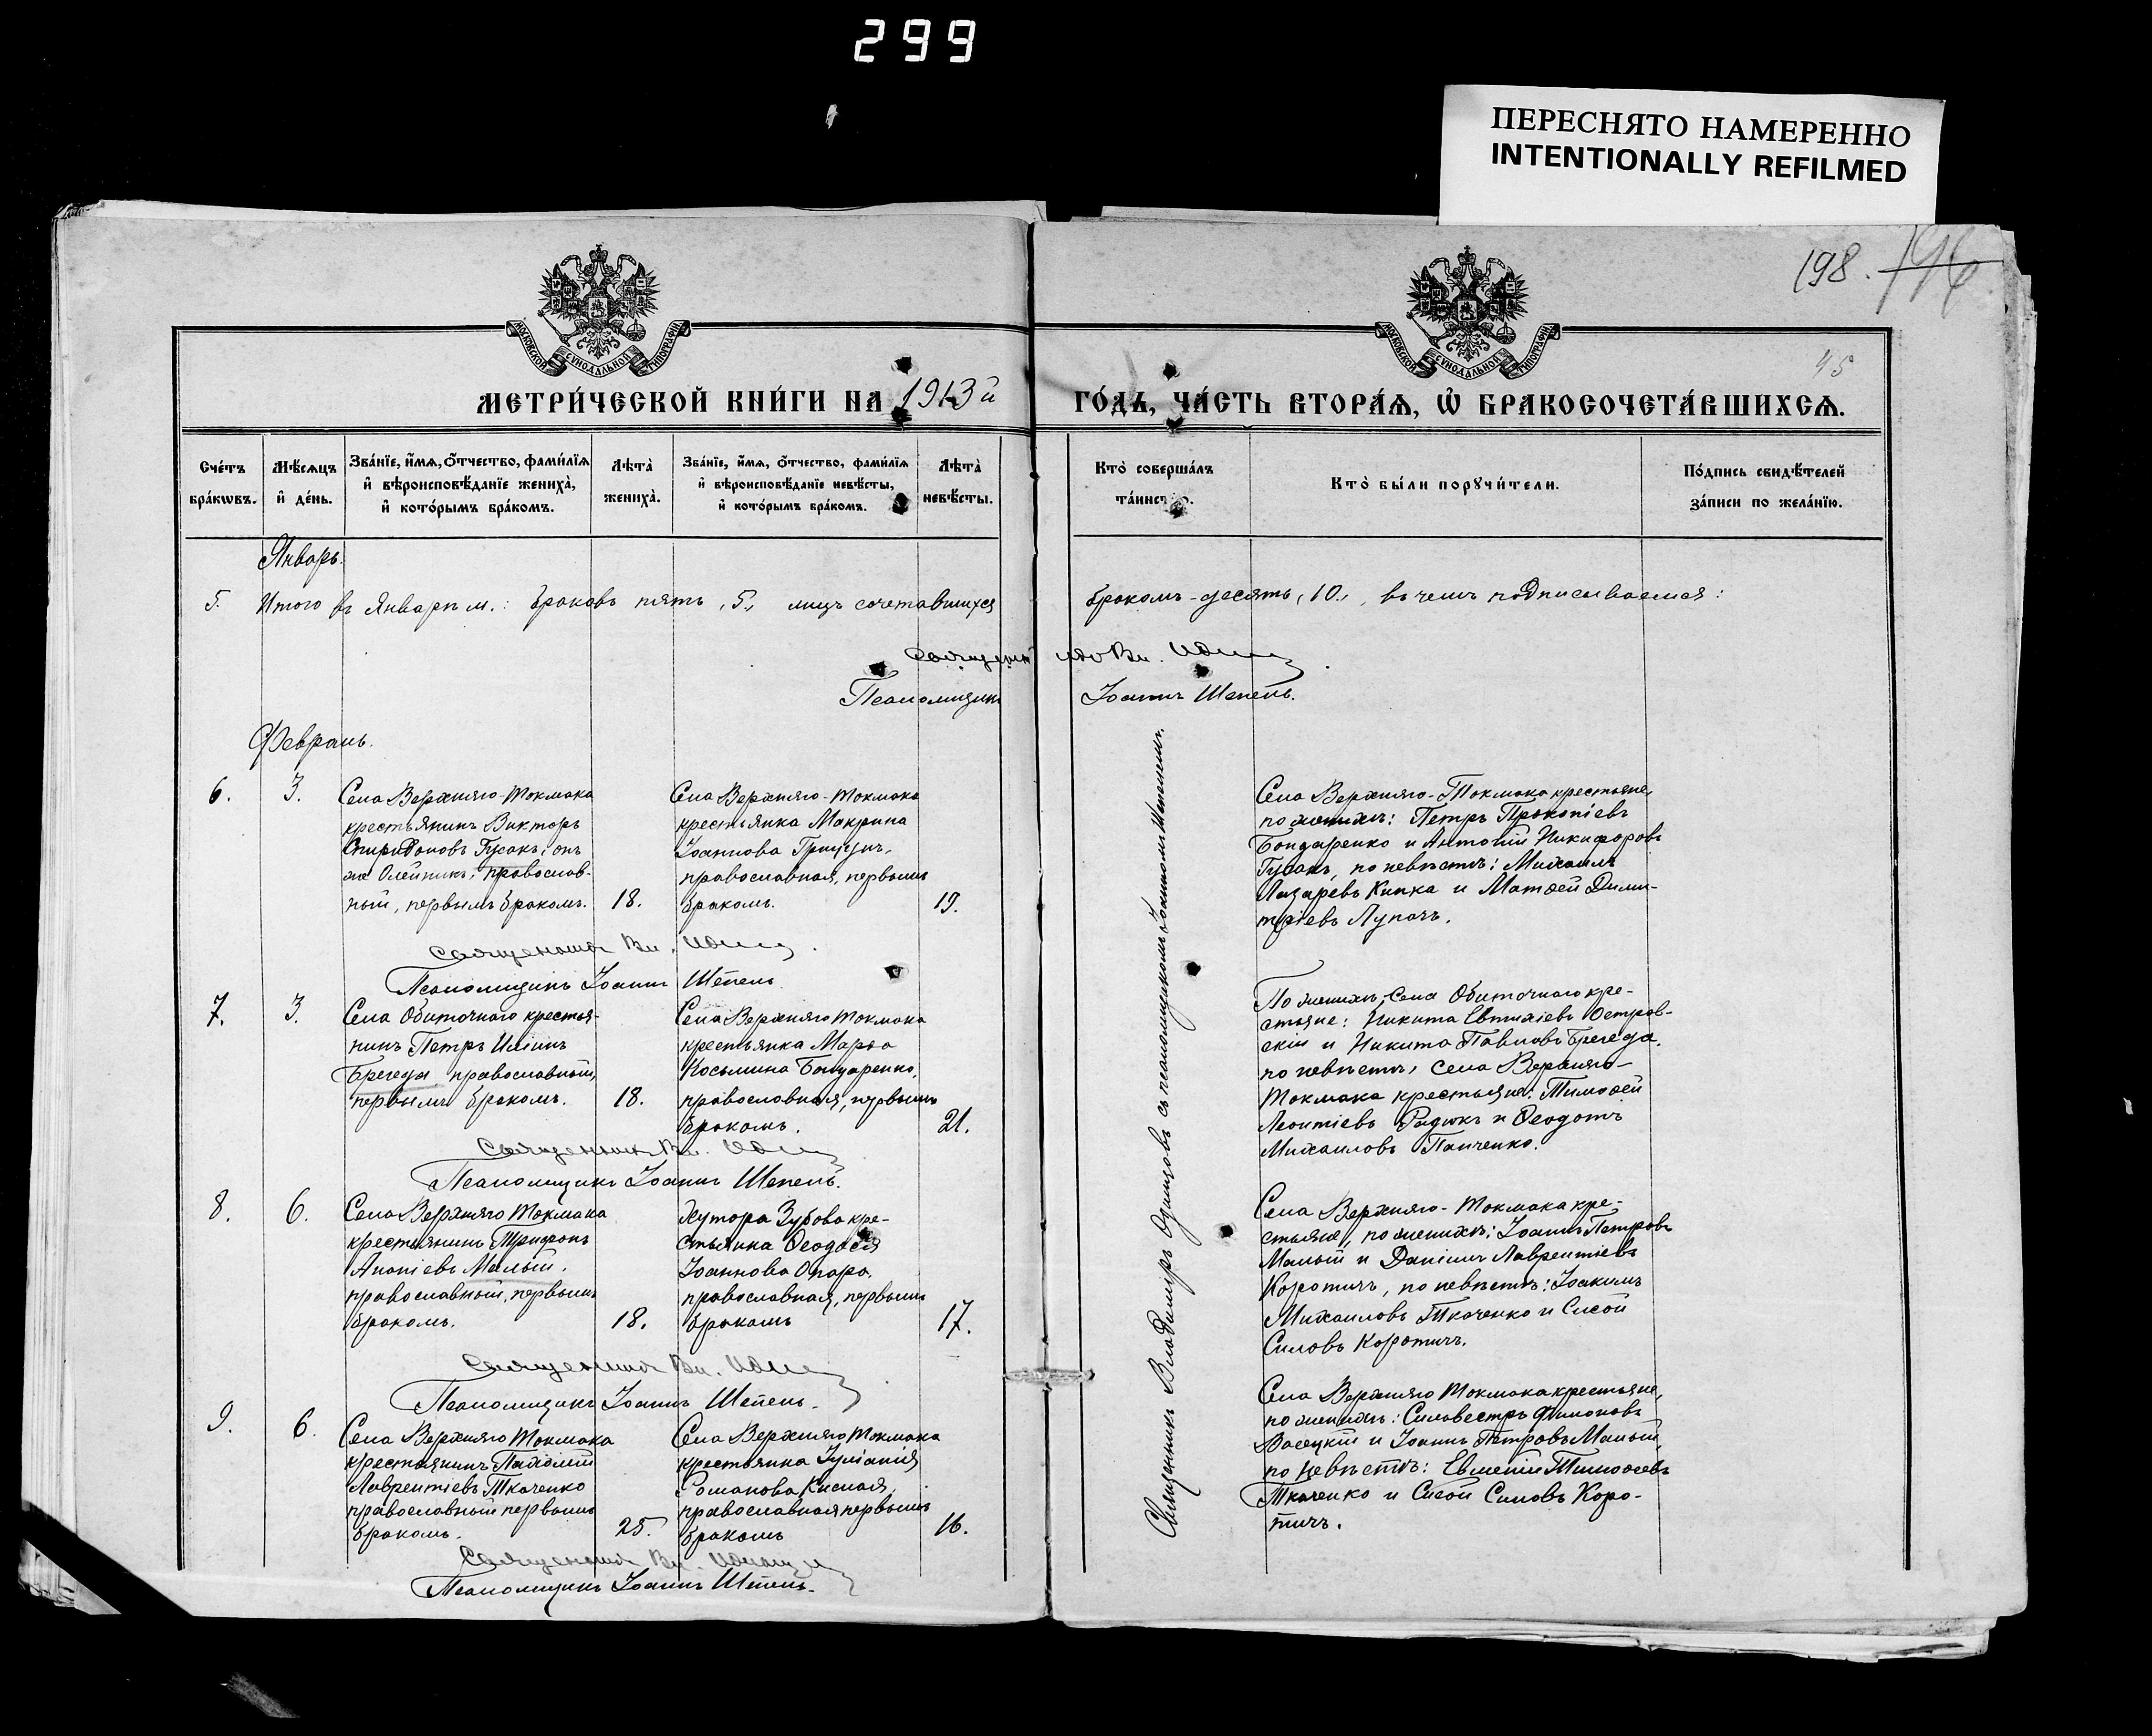 299
ПЕРЕСНЯТО НАМЕРЕННО
INTENTIONALLY REFILMED
198. 196
45
МОСКОВСКОЙ СѴНОДАЛЬНОЙ ТИПОГРАФІИ
МОСКОВСКОЙ СѴНОДАЛЬНОЙ ТИПОГРАФІИ
МЕТРИ́ЧЕСКОЙ КНИ́ГИ НА 1913й ГО́ДЪ, ЧА́СТЬ ВТОРА́Ѧ, Ѽ БРАКОСОЧЕТА́ВШИХСѦ.
Сче́тъ бра́кѡвъ.
Мѣ́сѧцъ и҆ де́нь.
Зва́нїе, и҆́мѧ, ѻ҆́тчество, фами́лїѧ и҆ вѣроисповѣ́данїе жениха̀, и҆ кото́рымъ бра́комъ.
Лѣ́та̀ жениха̀.
Зва́нїе, и҆́мѧ, ѻ҆́тчество, фами́лїѧ и҆ вѣроисповѣ́данїе невѣ́сты, и҆ кото́рымъ бра́комъ.
Лѣ́та̀ невѣ́сты.
Кто̀ соверша́лъ та́инство.
Кто̀ бы́ли порꙋчи́тели.
По́дпись свидѣ́телей за́писи по жела́нїю.
Январь.
5. Итого въ Январѣ м.: браковъ пять, 5, лицъ сочетавшихся бракомъ - десять, 10, въ чемъ подписываемся:
Священникъ Вл.
Псаломщикъ Іоаннъ Шепель.
Февраль.
6. 3.
Села Верхняго-Токмака
крестьянинъ Викторъ
Спиридоновъ Гусакъ, онъ
же Олейникъ, православ-
ный, первымъ бракомъ. 18.
Села Верхняго-Токмака
крестьянка Макрина
Іоаннова Грицунъ,
православная, первымъ
бракомъ. 19.
Села Верхняго-Токмака крестьяне,
по женихѣ: Петръ Прокопіевъ
Бондаренко и Антоній Никифоровъ
Гусакъ, по невѣстѣ: Михаилъ
Лазаревъ Кипка и Матѳей Дими-
тріевъ Лупачъ.
Священникъ Вл.
Псаломщикъ Іоаннъ Шепель
7. 3.
Села Обиточнаго крестья-
нинъ Петръ Иліинъ
Брегеда, православный,
первымъ бракомъ. 18.
Села Верхняго Токмака
крестьянка Марѳа
Косьмина Бондаренко,
православная, первымъ
бракомъ. 21.
По женихѣ, села Обиточнаго кре-
стьяне: Никита Евтихіевъ Остров-
скій и Никита Павловъ Брегеда,
по невѣстѣ, села Верхняго-
Токмака крестьяне: Тимоѳей
Леонтіевъ Радюкъ и Ѳеодотъ
Михаиловъ Панченко.
Священникъ Вл.
Псаломщикъ Іоаннъ Шепель.
8. 6.
Села Верхняго Токмака
крестьянинъ Трифонъ
Ананіевъ Малый,
православный, первымъ
бракомъ. 18.
Хутора Зубова кре-
стьянка Ѳеодосія
Іоаннова Опара,
православная, первымъ
бракомъ 17.
Села Верхняго-Токмака кре-
стьяне, по женихѣ: Іоаннъ Петровъ
Малый и Даніилъ Лаврентіевъ
Коротичъ, по невѣстѣ: Іоакимъ
Михаиловъ Ткаченко и Сисой
Силовъ Коротичъ.
Священникъ Вл.
Псаломщикъ Іоаннъ Шепель.
9. 6.
Села Верхняго Токмака
крестьянинъ Пахомій
Лаврентіевъ Ткаченко
православный первымъ
бракомъ. 25.
Села Верхняго Токмака
крестьянка Іуліанія
Романова Кислая,
православная первымъ
бракомъ 16.
Села Верхняго Токмака крестьяне,
по женихѣ: Сильвестръ Филоновъ
и Іоаннъ Петровъ Малый,
по невѣстѣ: Евменій Тимоѳеевъ
Ткаченко и Сисой Силовъ Коро-
тичъ.
Священникъ Вл.
Псаломщикъ Іоаннъ Шепель.
Священникъ Владиміръ Одинцовъ съ псаломщикомъ Іоанномъ Шепелемъ.